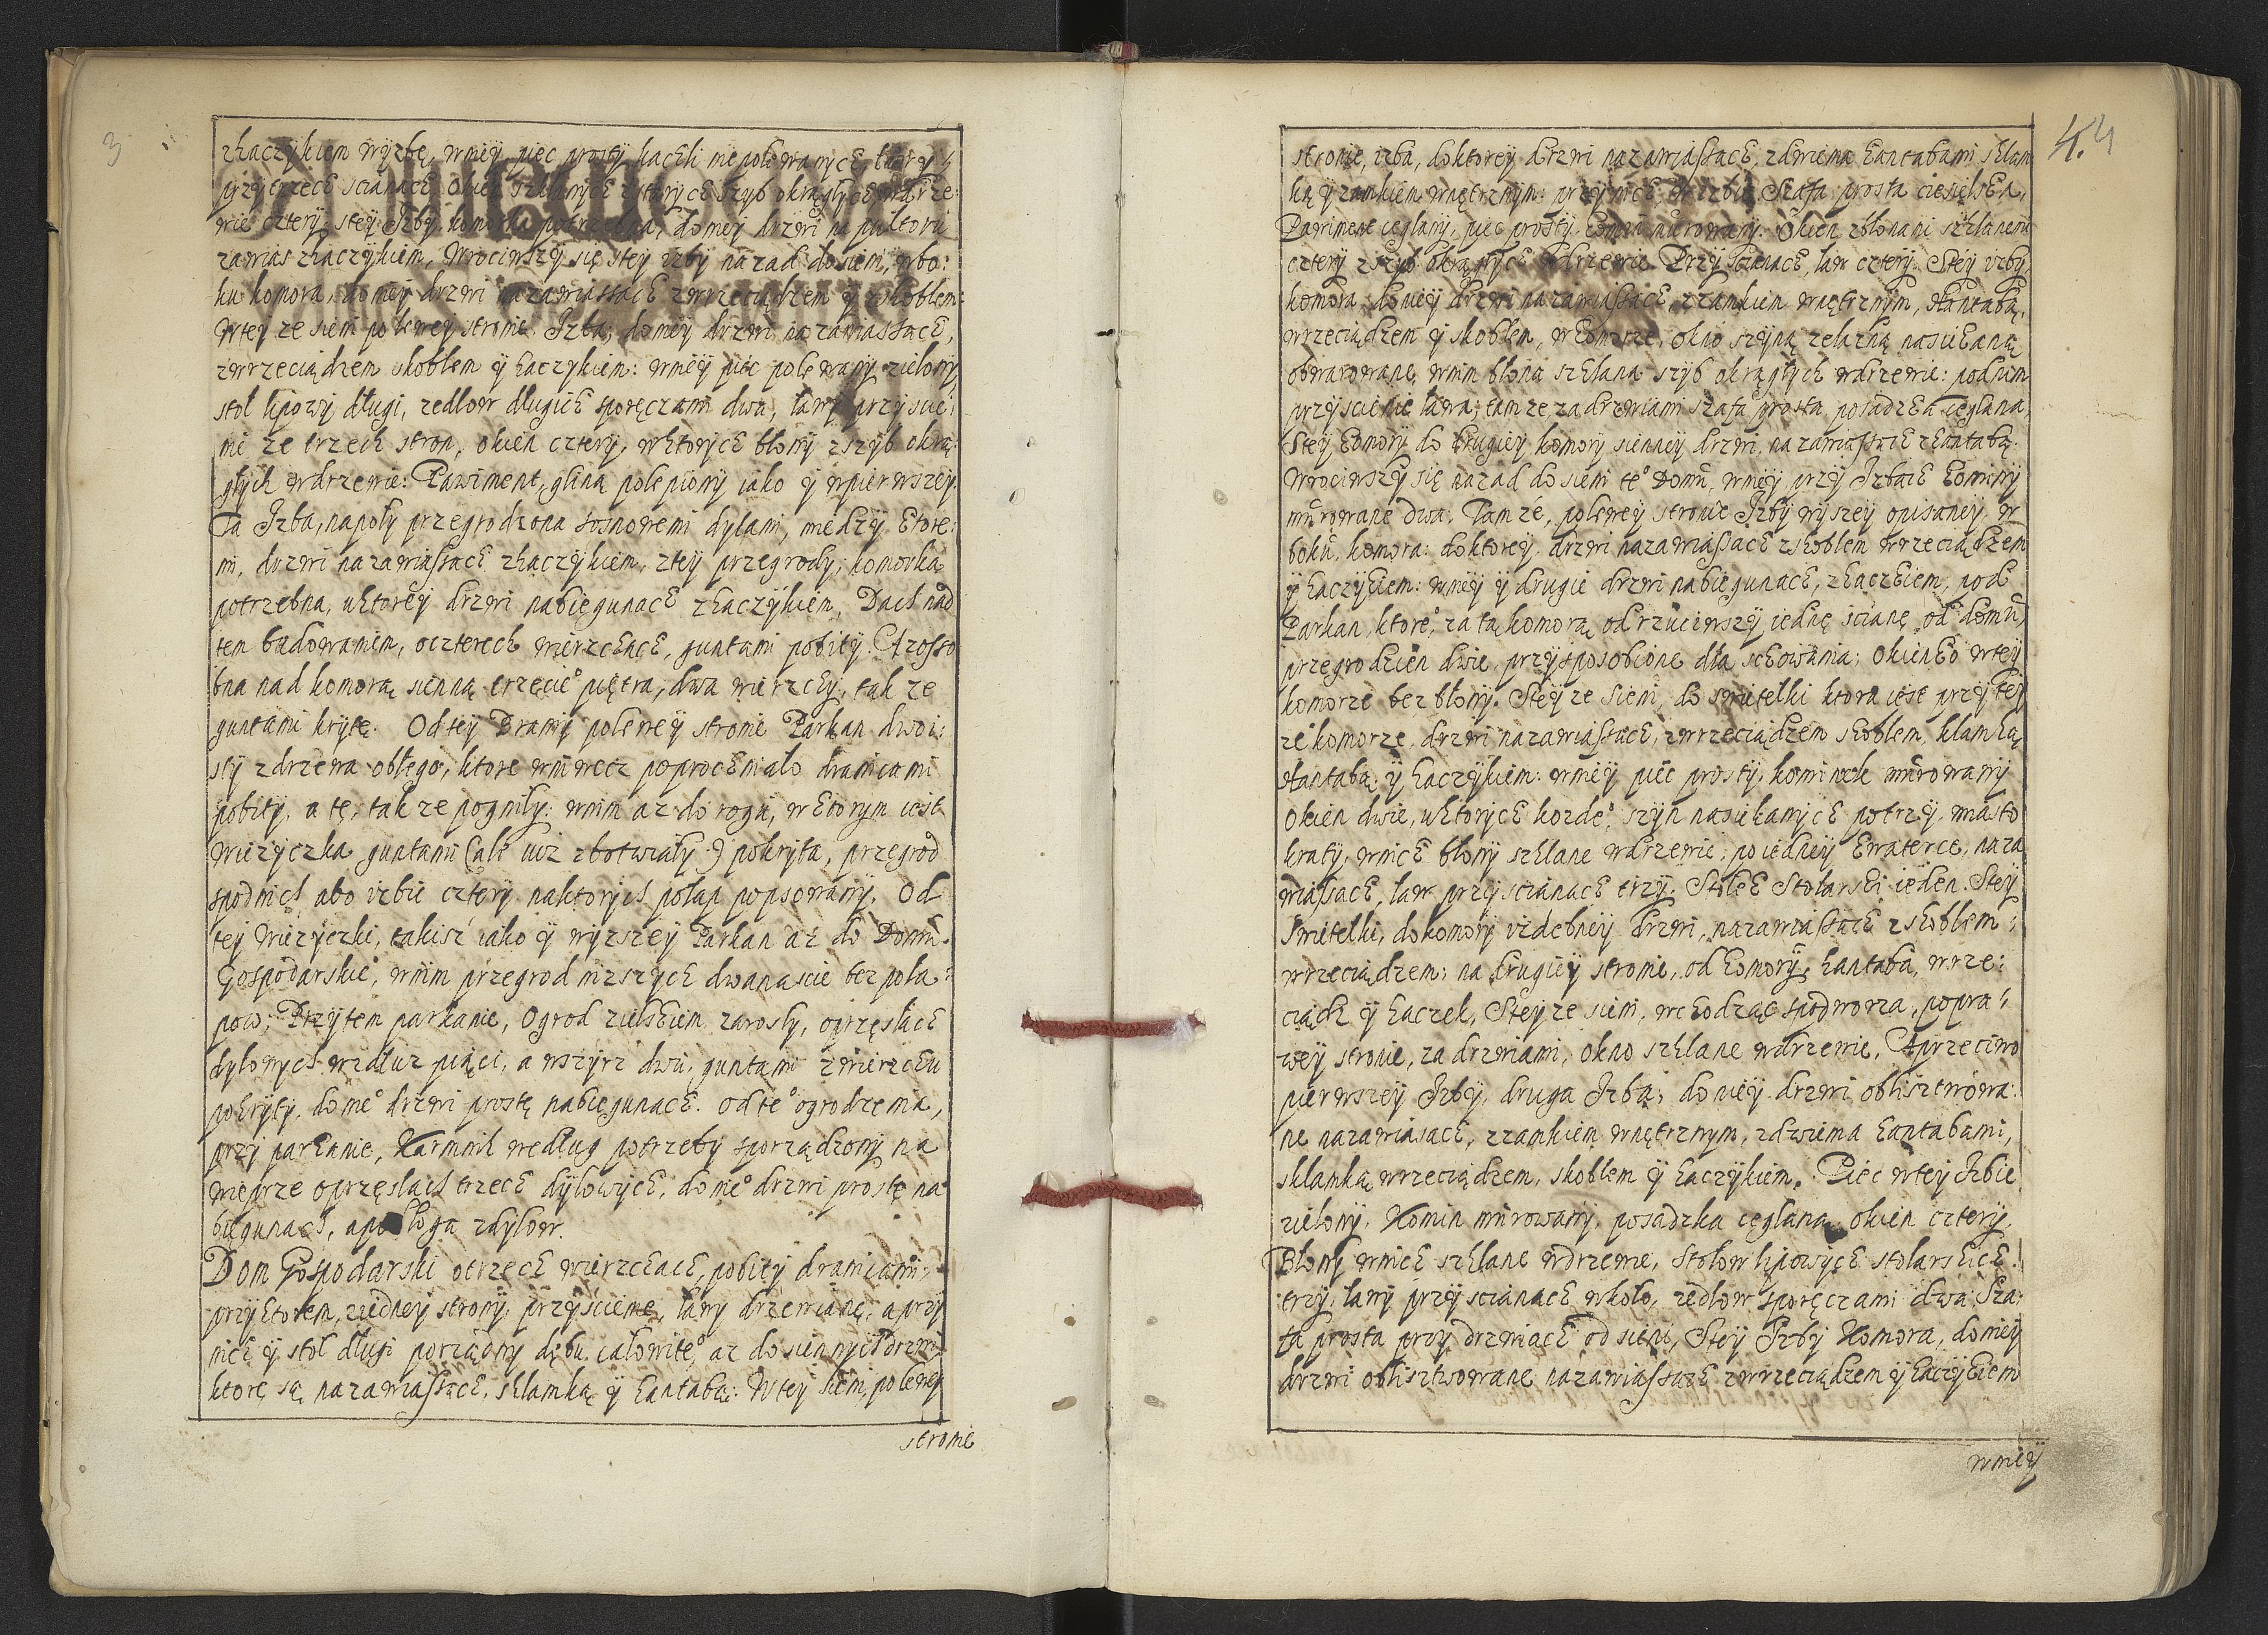 3
zhaczykiem wyzbę, wniey piec prosty kachli niepolewanych, ławy
przy trzech scianach, Okien szklanych z ktorych szyb okrągłych wdrze:
wie cztery, stey Izby komorka potrzebna, do niey drzwi na pułtoru
zawias zhaczykiem, Wrociwszy się stey izby nazad do sieni, wbo:
ku komora, do niey drzwi nazawiassach zwrzeciądzem y skoblem:
Wtey ze sieni po lewey stronie Izba, do niey drzwi nazawiassach,
zwrzeciądzem skoblem y haczykiem: wniey piec polewany zielony
stoł lipowy długi, zedlow długich sporęczami dwa, ławy przyscie:
nie ze trzech stron, okien cztery, wktorych błony zszyb okrą:
głych wdrzewie: Pawiment, gliną polepiony iako y wpierwszey.
Ta Izba, napoły przegrodzona sosnowemi dylami, miedzy ktore:
mi, drzwi nazawiassach zhaczykiem, ztey przegrody, komorka
potrzebna, uktorey drzwi nabiegunach zhaczykiem, Dach nad
tem budowaniem, oczterech wierzchach, guntami pobity. Azosso
bna nad komorą sienną trzecie° piętra, dwa wierzchy, tak ze
guntami kryte. Odtey Bramy polewey stronie Parkan dwoi:
sty zdrzewa obłego, ktore wniwecz poprochniało dranicami
pobity, a te, tak ze pogniły: wnim az do rogu, wktorym iest
Wiezyczka guntami (ale iuz zbotwiały) pokryta, przegrod
spodnich abo izbic cztery, naktorych połap popsowany. Od
tey Wiezyczki, takisz iako y wyzszey Parkan az do Domu
Gospodarskie°, wnim przegrod nizszych dwanascie bez poła:
pow. Przytem parkanie, Ogrod zielskiem zarosły, oprzęsłach
dylowych wzdłuz piąci, a wszyrz dwu, guntami zwierzchu
pokryty, do nie° drzwi proste nabiegunach. od te° ogrodzenia,
przy parkanie, Karmnik według potrzeby sporządzony na
wieprze oprzęsłach trzech dylowych, do nie° drzwi proste na
biegunach, apodłoga zdylow.
Dom Gospodarski otrzech wierzchach, pobity dranicami,
przyktorem, ziedney strony, przyscienie, ławy drzewiane, aprzy
nich y stoł długi porządny dębu całowite°, az do siennych drzwi
ktore są nazawiassach, sklamką y hantabą: Wtey sieni, po lewey
stronie
4. 4
stronie, izba, doktorey drzwi nazawiassach, zdwiema hantabami sklam
ką y zamkiem wnętrznym: przy nich, wizbie Szafa prosta ciesielska,
Pawiment ceglany, piec prosty, komin murowany. Okien zbłonami szklanemi
cztery zszyb okrągłych wdrzewie. Przy scianach, ław cztery. Stey izby
komora, do niey drzwi nazawiassach, zzamkiem wnętrznym, shantabą,
wrzeciądzem y skoblem, wkomorze, okno szyną zelazną nasiekaną
obwarowane, wnim błona szklana szyb okrągłych wdrzewie: podnim
przyscienie ława; tamze zadrzwiami szafa prosta posadzka ceglana,
Stey komory do drugiey komory sienney drzwi, nazawiassach zhantabą.
Wrociwszy się nazad do sieni te° Domu, wniey przy Izbach kominy
murowane dwa. Tamze, polewey stronie Izby wyszey opisaney, w
boku, komora: doktorey drzwi nazawiassach zskoblem wrzeciądzem
y haczykiem: wniey y drugie drzwi nabiegunach, zhaczkiem, pod
Parkan, ktore°, za tą komorą odrzuciwszy iednę scianę, od domu,
przegrodzien dwie, przysposobione dla schowania; Okienko wtey
komorze bez błony. Steyze Sieni, do swietelki ktora iest przy tey
ze komorze, drzwi nazawiassach, zwrzeciądzem skoblem, klamką
shantabą, y haczykiem: wniey piec prosty, kominek murowany
okien dwie, uktorych kozde°, szyn nasiekanych potrzy, miasto
kraty, wnich błony szklane wdrzewie, po iedney kwaterce, naza
wiasach, ław przyscianach trzy. Stołek Stolarski ieden. Stey
Swietelki, dokomory izdebney drzwi, nazawiassach zskoblem,
wrzeciądzem; na drugiey stronie, od komory, hantaba, wrze:
ciądz y haczek, Steyze sieni, wchodząc spodworza, popra:
wey stronie, za drzwiami, okno szklane wdrzewie. Aprzeciwo
pierwszey Izby, druga Izba; do niey drzwi oblisztwowa:
ne nazawiasach, zzamkiem wnętrznym, zdwiema hantabami,
sklamką wrzeciądzem, skoblem y haczykiem. Piec wtey Izbie
zielony, Komin murowany, posadzka ceglana, okien cztery,
Błony wnich szklane wdrzewie, Stołow lipowych stolarskich
trzy, ławy przy scianach wkoło, zedlow sporęczami dwa: Sza:
fa prosta przy drzwiach od sieni, Stey Izby Komora, do niey
drzwi oblisztwowane nazawiassach zwrzeciądzem y haczykiem
wniey